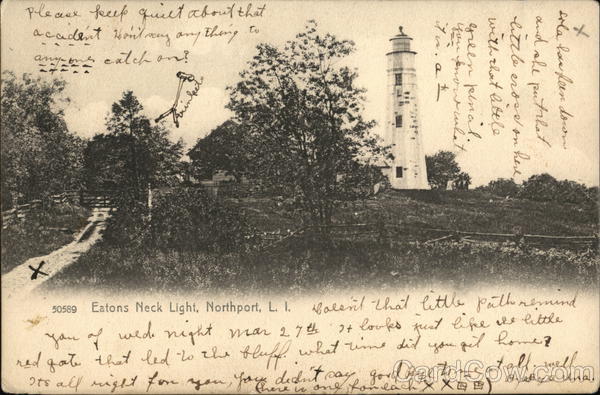 Please keep quiet about that
accadent Don't say any thing to
any one catch on?
Ida has been down
and she put that
little cross on here
with that little
green pencil
you know what
it is a
50589 Eatons Neck Light, Northport, L. I.
Doesn't that little path remind
you of wed night Mar 27th it looks just like the little
red gate that led to the bluff. what time did you get home?
It's all right for you, you didn't say good
there is one for each X X
CardCow.com